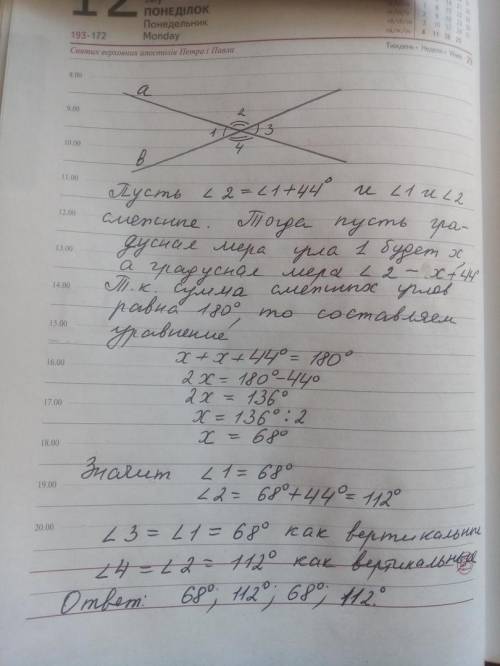 ПОНЕДІЛОК
Понедельник
193-172 Monday
Святих верховних апостолів Петра і Павла
Тиждень • Неделя • Week
8.00
a
9.00
2
1 3
10.00
4
в
11.00
Пусть ∠2=∠1+44° и ∠1 и ∠2
12.00
смежные. Тогда пусть гра-
дусная мера угла 1 будет x
13.00
а градусная мера ∠2 – x+44°
14.00
Т.к. сумма смежных углов
равна 180°, то составляем
15.00
уравнение
x+x+44°=180°
16.00
2x=180°-44°
2x = 136°
17.00
x=136°:2
x = 68°
18.00
Значит ∠1=68°
19.00
∠2= 68°+44°=112°
20.00
∠3=∠1=68° как вертикальные
∠4=∠2=112° как вертикальные
Ответ: 68°; 112°; 68°; 112°.